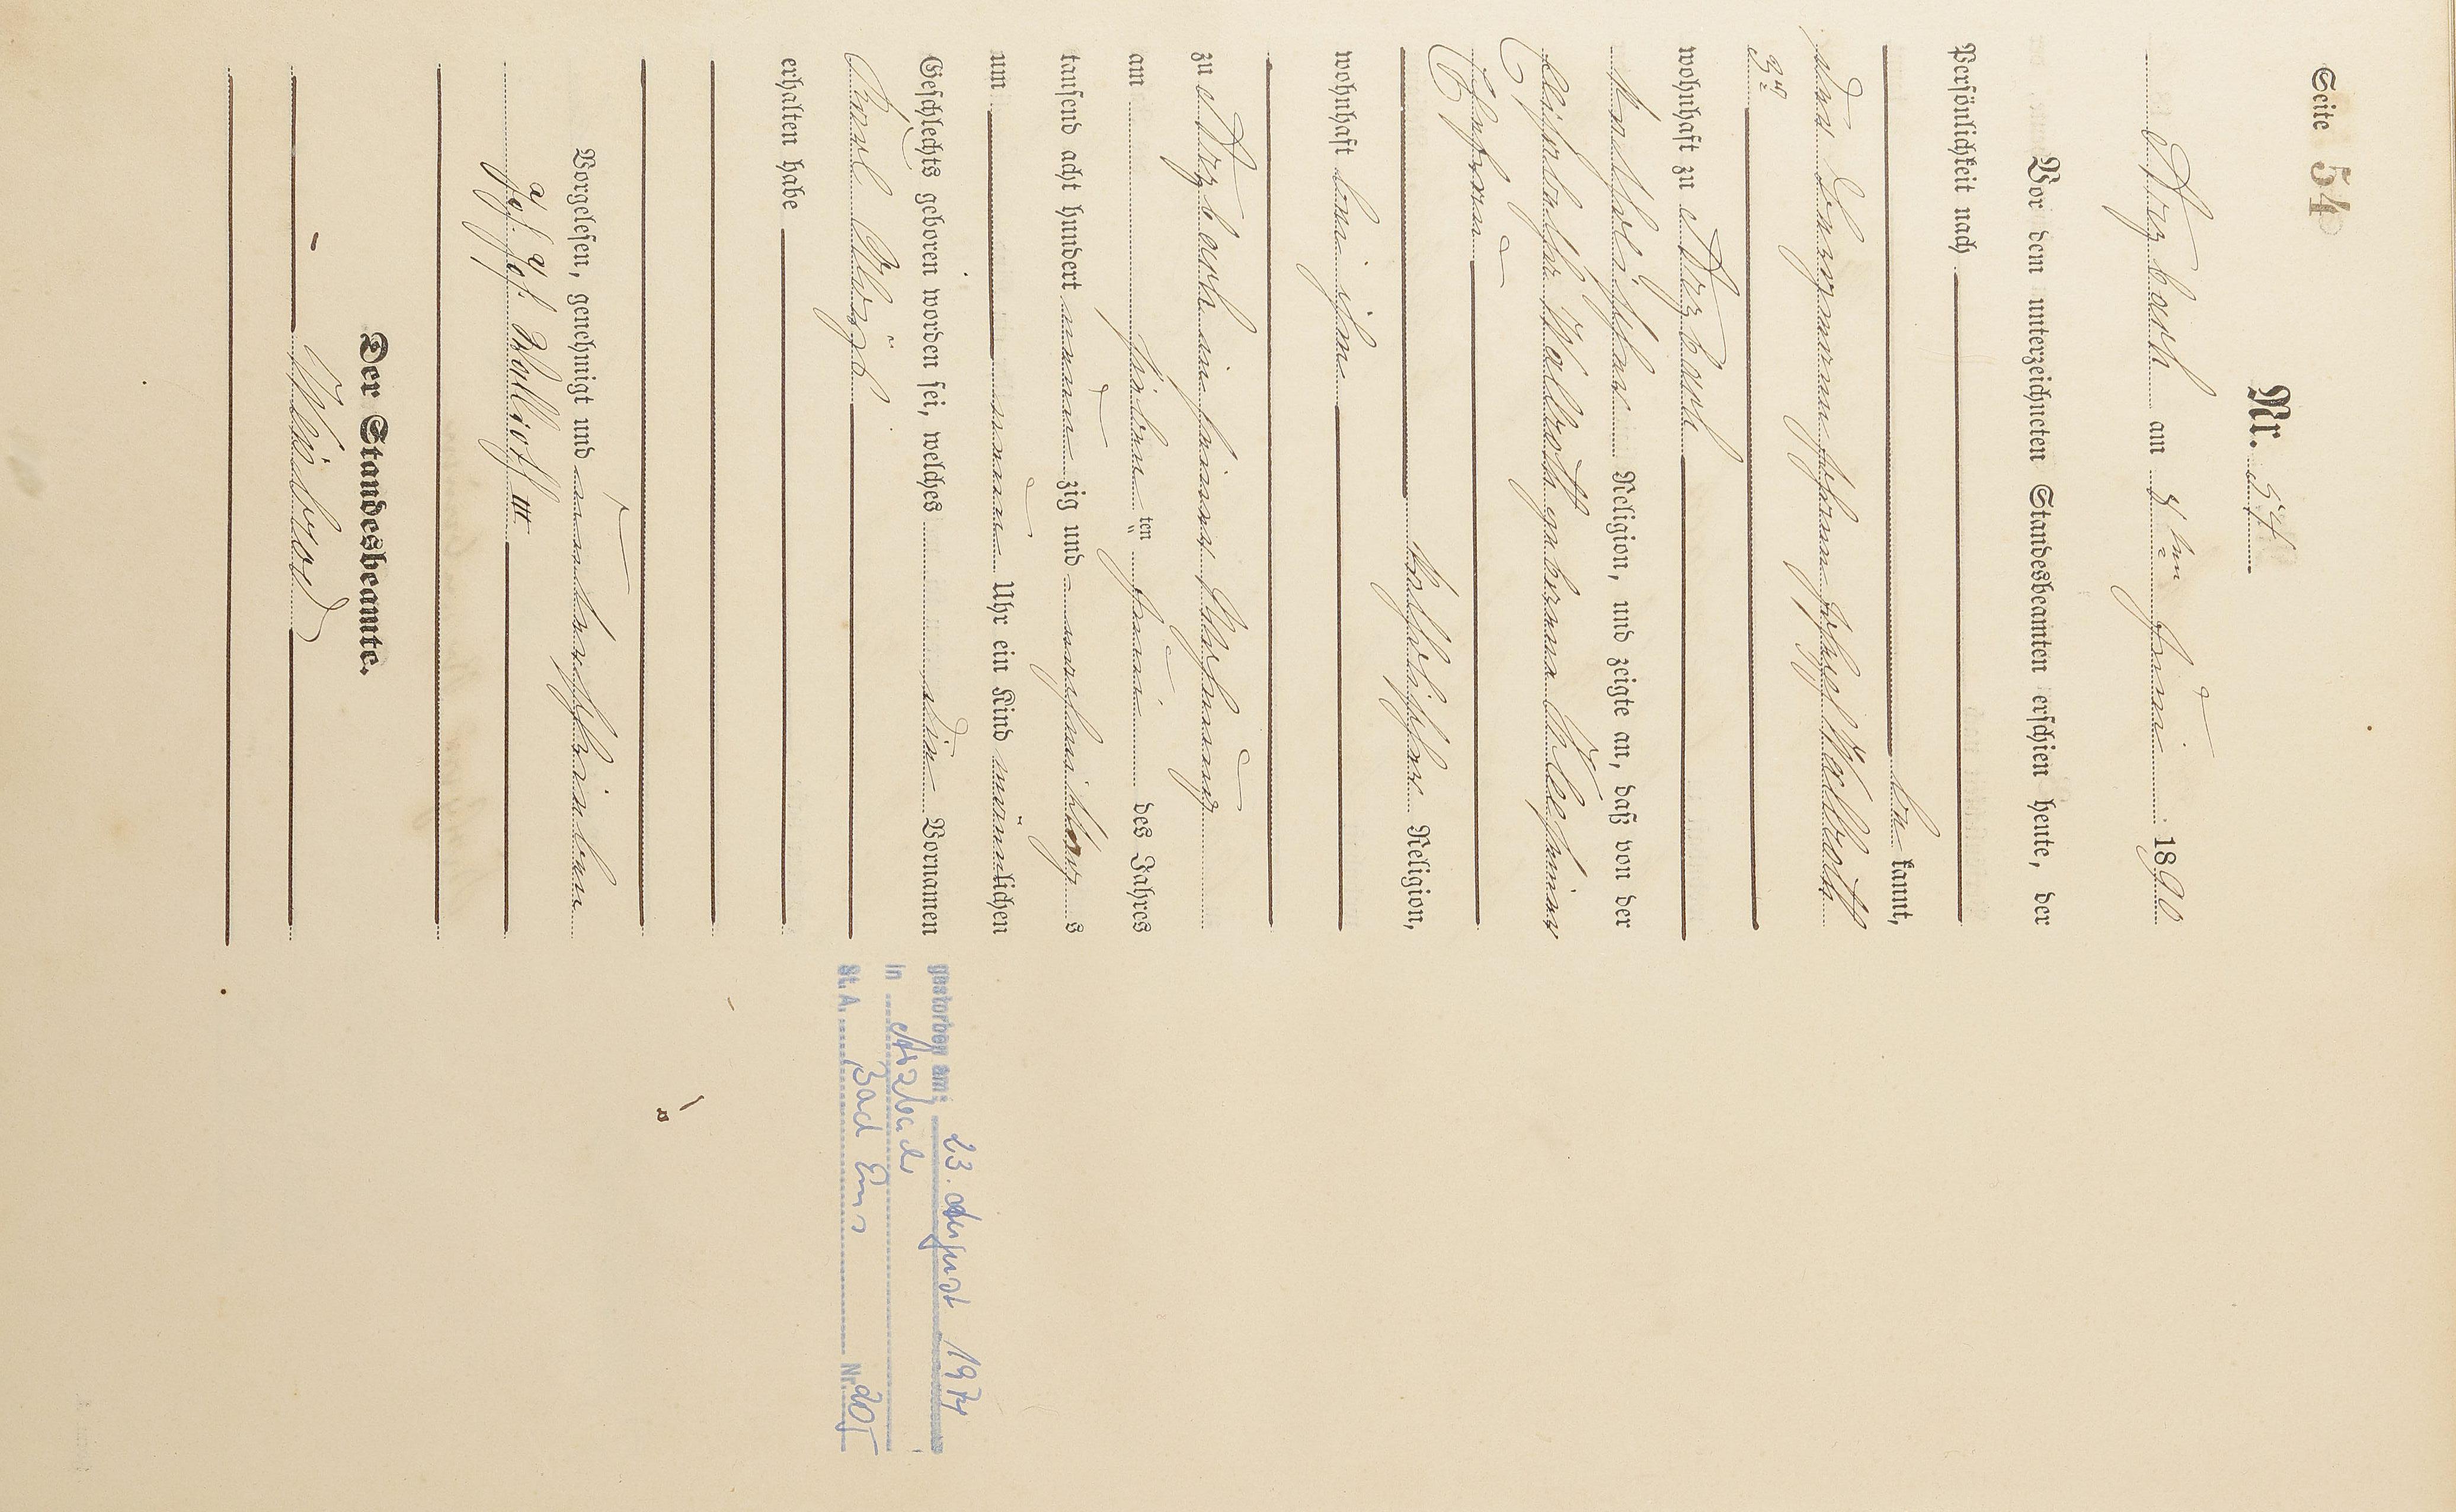 Seite 54
Nr. 54
Arzbach am 8ten Juni 1890
Vor dem unterzeichneten Standesbeamten erschien heute, der
Persönlichkeit nach
be kannt,
der Bergmann Johann Joseph Wallroth
3ᵗᵉʳ
wohnhaft zu Arzbach
katholischer Religion, und zeigte an, daß von der
Elisabetha Wallroth geborene
Ehefrau
katholischer Religion,
wohnhaft bei ihm
zu Arzbach in seiner Wohnung
am siebenten Juni des Jahres
tausend acht hundert neunzig und nachmittags
um neun Uhr ein Kind männlichen
Geschlechts geboren worden sei, welches die Vornamen
Karl Alois
erhalten habe
Vorgelesen, genehmigt und unterschrieben
Joh. Jos. Wallroth III
Der Standesbeamte.
Weisbrod
gestorben am: 23. August 1974
in Arzbach
St. A. Bad Ems Nr. 205